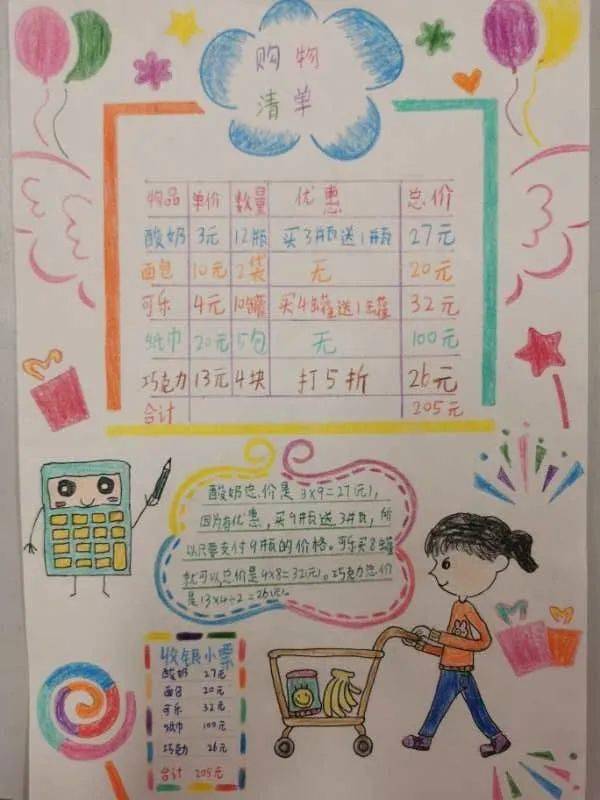 购物
清单
物品 单价 数量 优惠 总价
酸奶 3元 12瓶 买3瓶送1瓶 27元
面包 10元 2袋 无 20元
可乐 4元 10罐 买4罐送1罐 32元
纸巾 20元 5包 无 100元
巧克力 13元 4块 打5折 26元
合计 205元
酸奶总价是3×9=27(元),
因为有优惠,买9瓶送3瓶,所
以只要支付9瓶的价格。可乐买8罐
就可以,总价是4×8=32(元)。巧克力总价
是13×4÷2=26(元)。
收银小票
酸奶 27元
面包 20元
可乐 32元
纸巾 100元
巧克力 26元
合计 205元